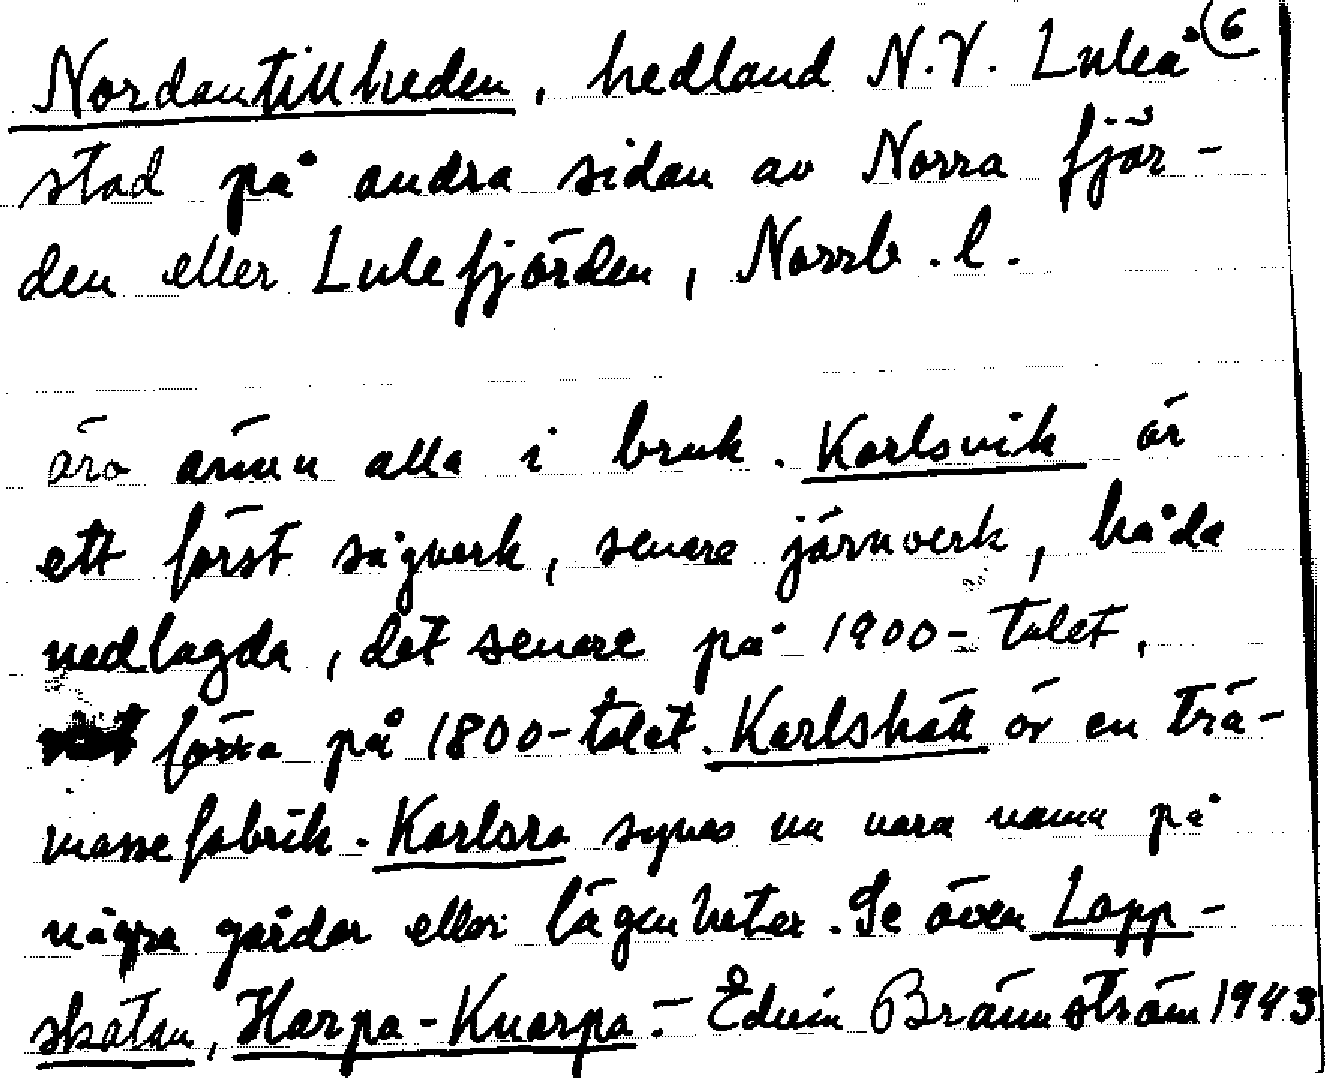 Nordantillheden, hedland N.V. Luleå 6
stad på andra sidan av Norra fjär-
den eller Lulefjärden, Norrb. l.
äro ännu alla i bruk. Karlsvik är
ett först sågverk, senare järnverk, båda
nedlagda, det senare på 1900-talet,
förra på 1800-talet. Karlshäll är en trä-
massefabrik. Karlsro synes nu vara namn på
några gårdar eller lägenheter. Se även Lapp-
skatan, Harpa-Knarpa.- Edvin Brännström 1943